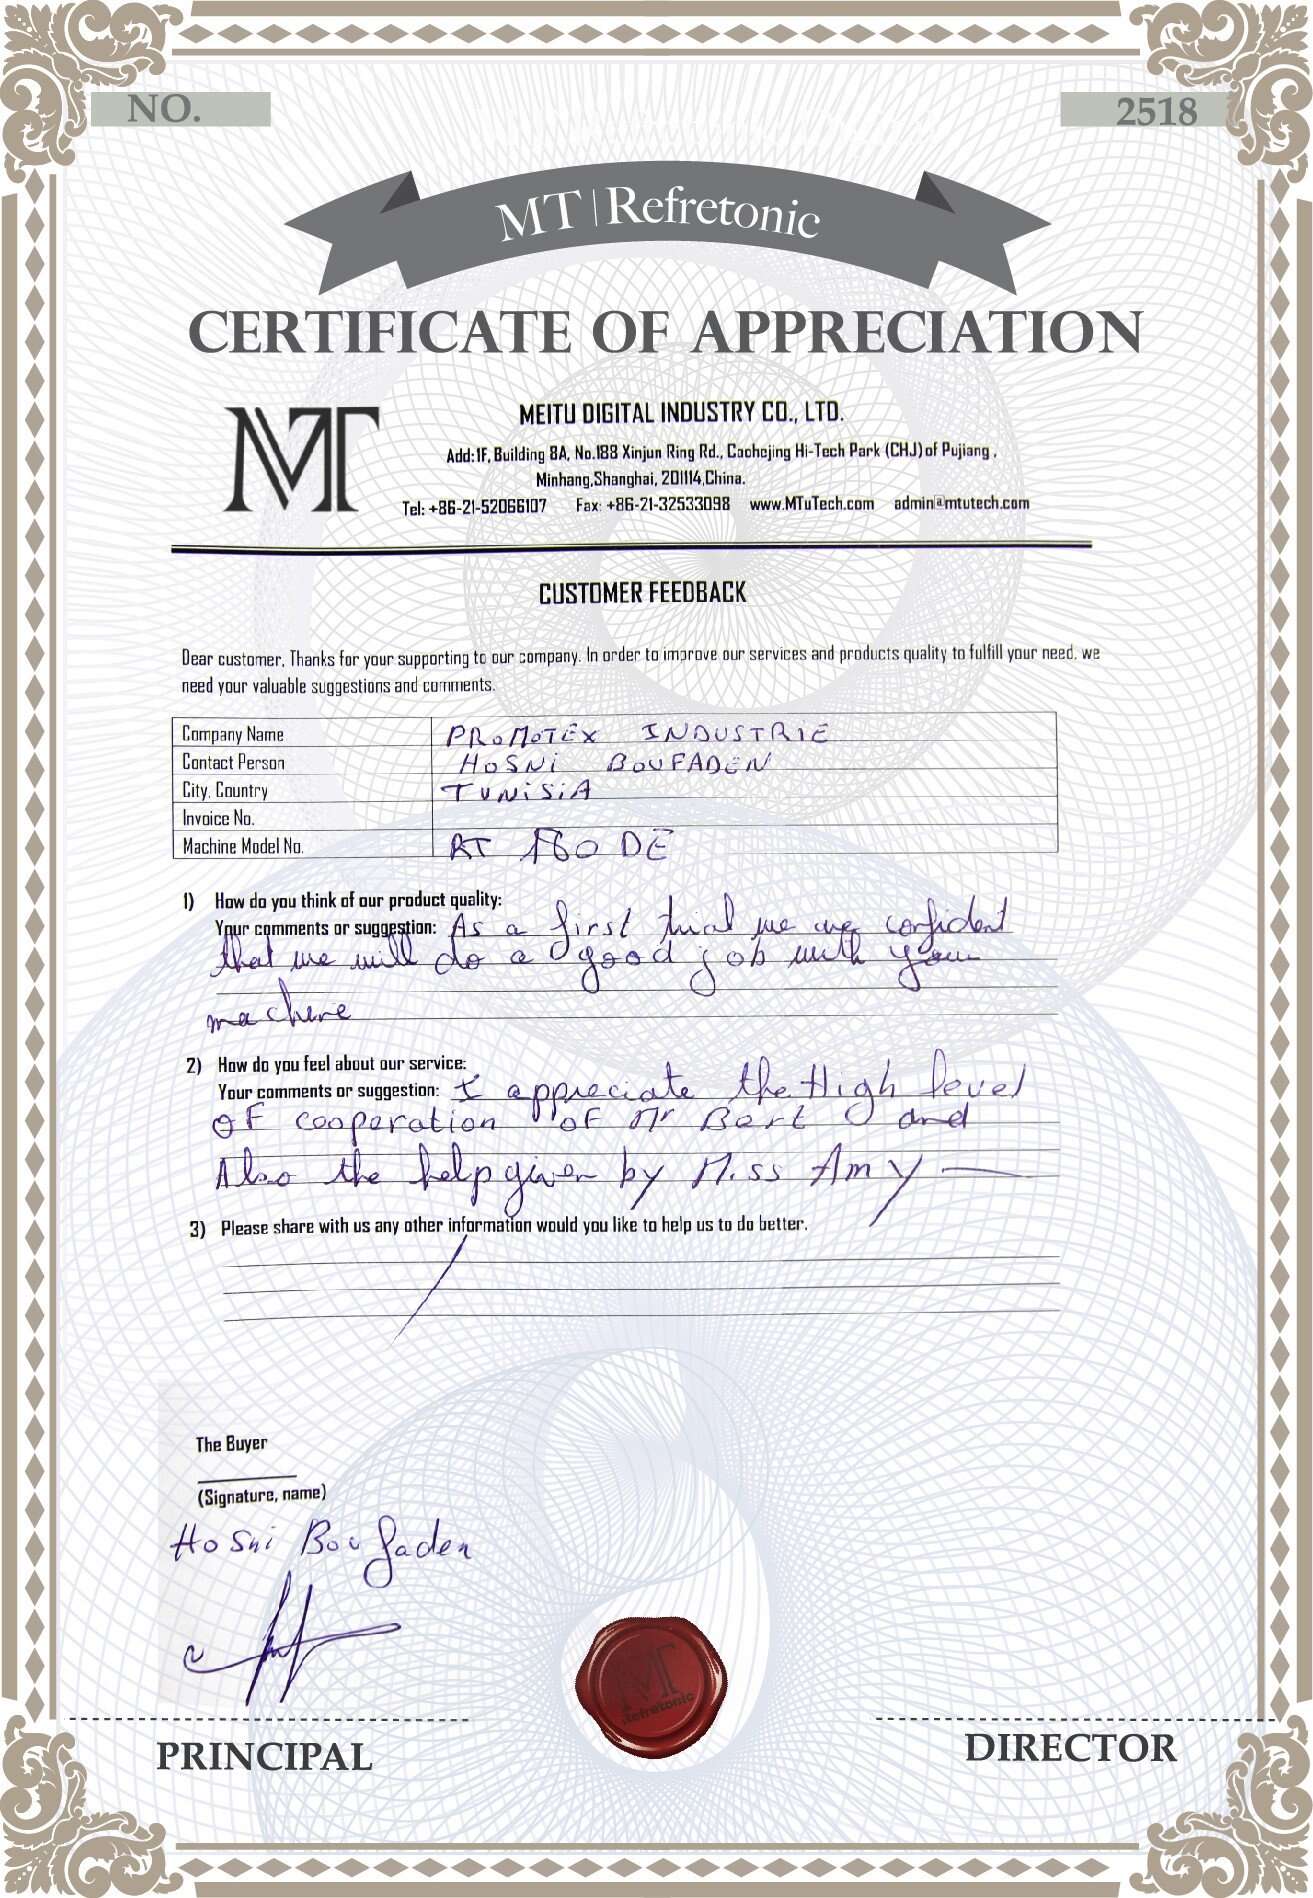 NO.
2518
MT | Refretonic
CERTIFICATE OF APPRECIATION
MT
MEITU DIGITAL INDUSTRY CO., LTD.
Add:1F, Building 8A, No.188 Xinjun Ring Rd., Caohejing Hi-Tech Park (CHJ) of Pujiang ,
Minhang,Shanghai, 201114,China.
Tel: +86-21-52066107 Fax: +86-21-32533098 www.MTuTech.com admin@mtutech.com
CUSTOMER FEEDBACK
Dear customer, Thanks for your supporting to our company. In order to improve our services and products quality to fulfill your need, we
need your valuable suggestions and comments.
Company Name PROMOTEX INDUSTRIE
Contact Person HOSNi BOUFADEN
City, Country TUNiSiA
Invoice No.
Machine Model No. RT 180 DE
1) How do you think of our product quality:
Your comments or suggestion: As a first trial we are confident
that we will do a good job with your
machine
2) How do you feel about our service:
Your comments or suggestion: I appreciate the High level
OF cooperation OF Mr Bert and
Also the help given by Miss Amy
3) Please share with us any other information would you like to help us to do better.
The Buyer
(Signature, name)
Hosni Boufaden
MT
Refretonic
PRINCIPAL
DIRECTOR